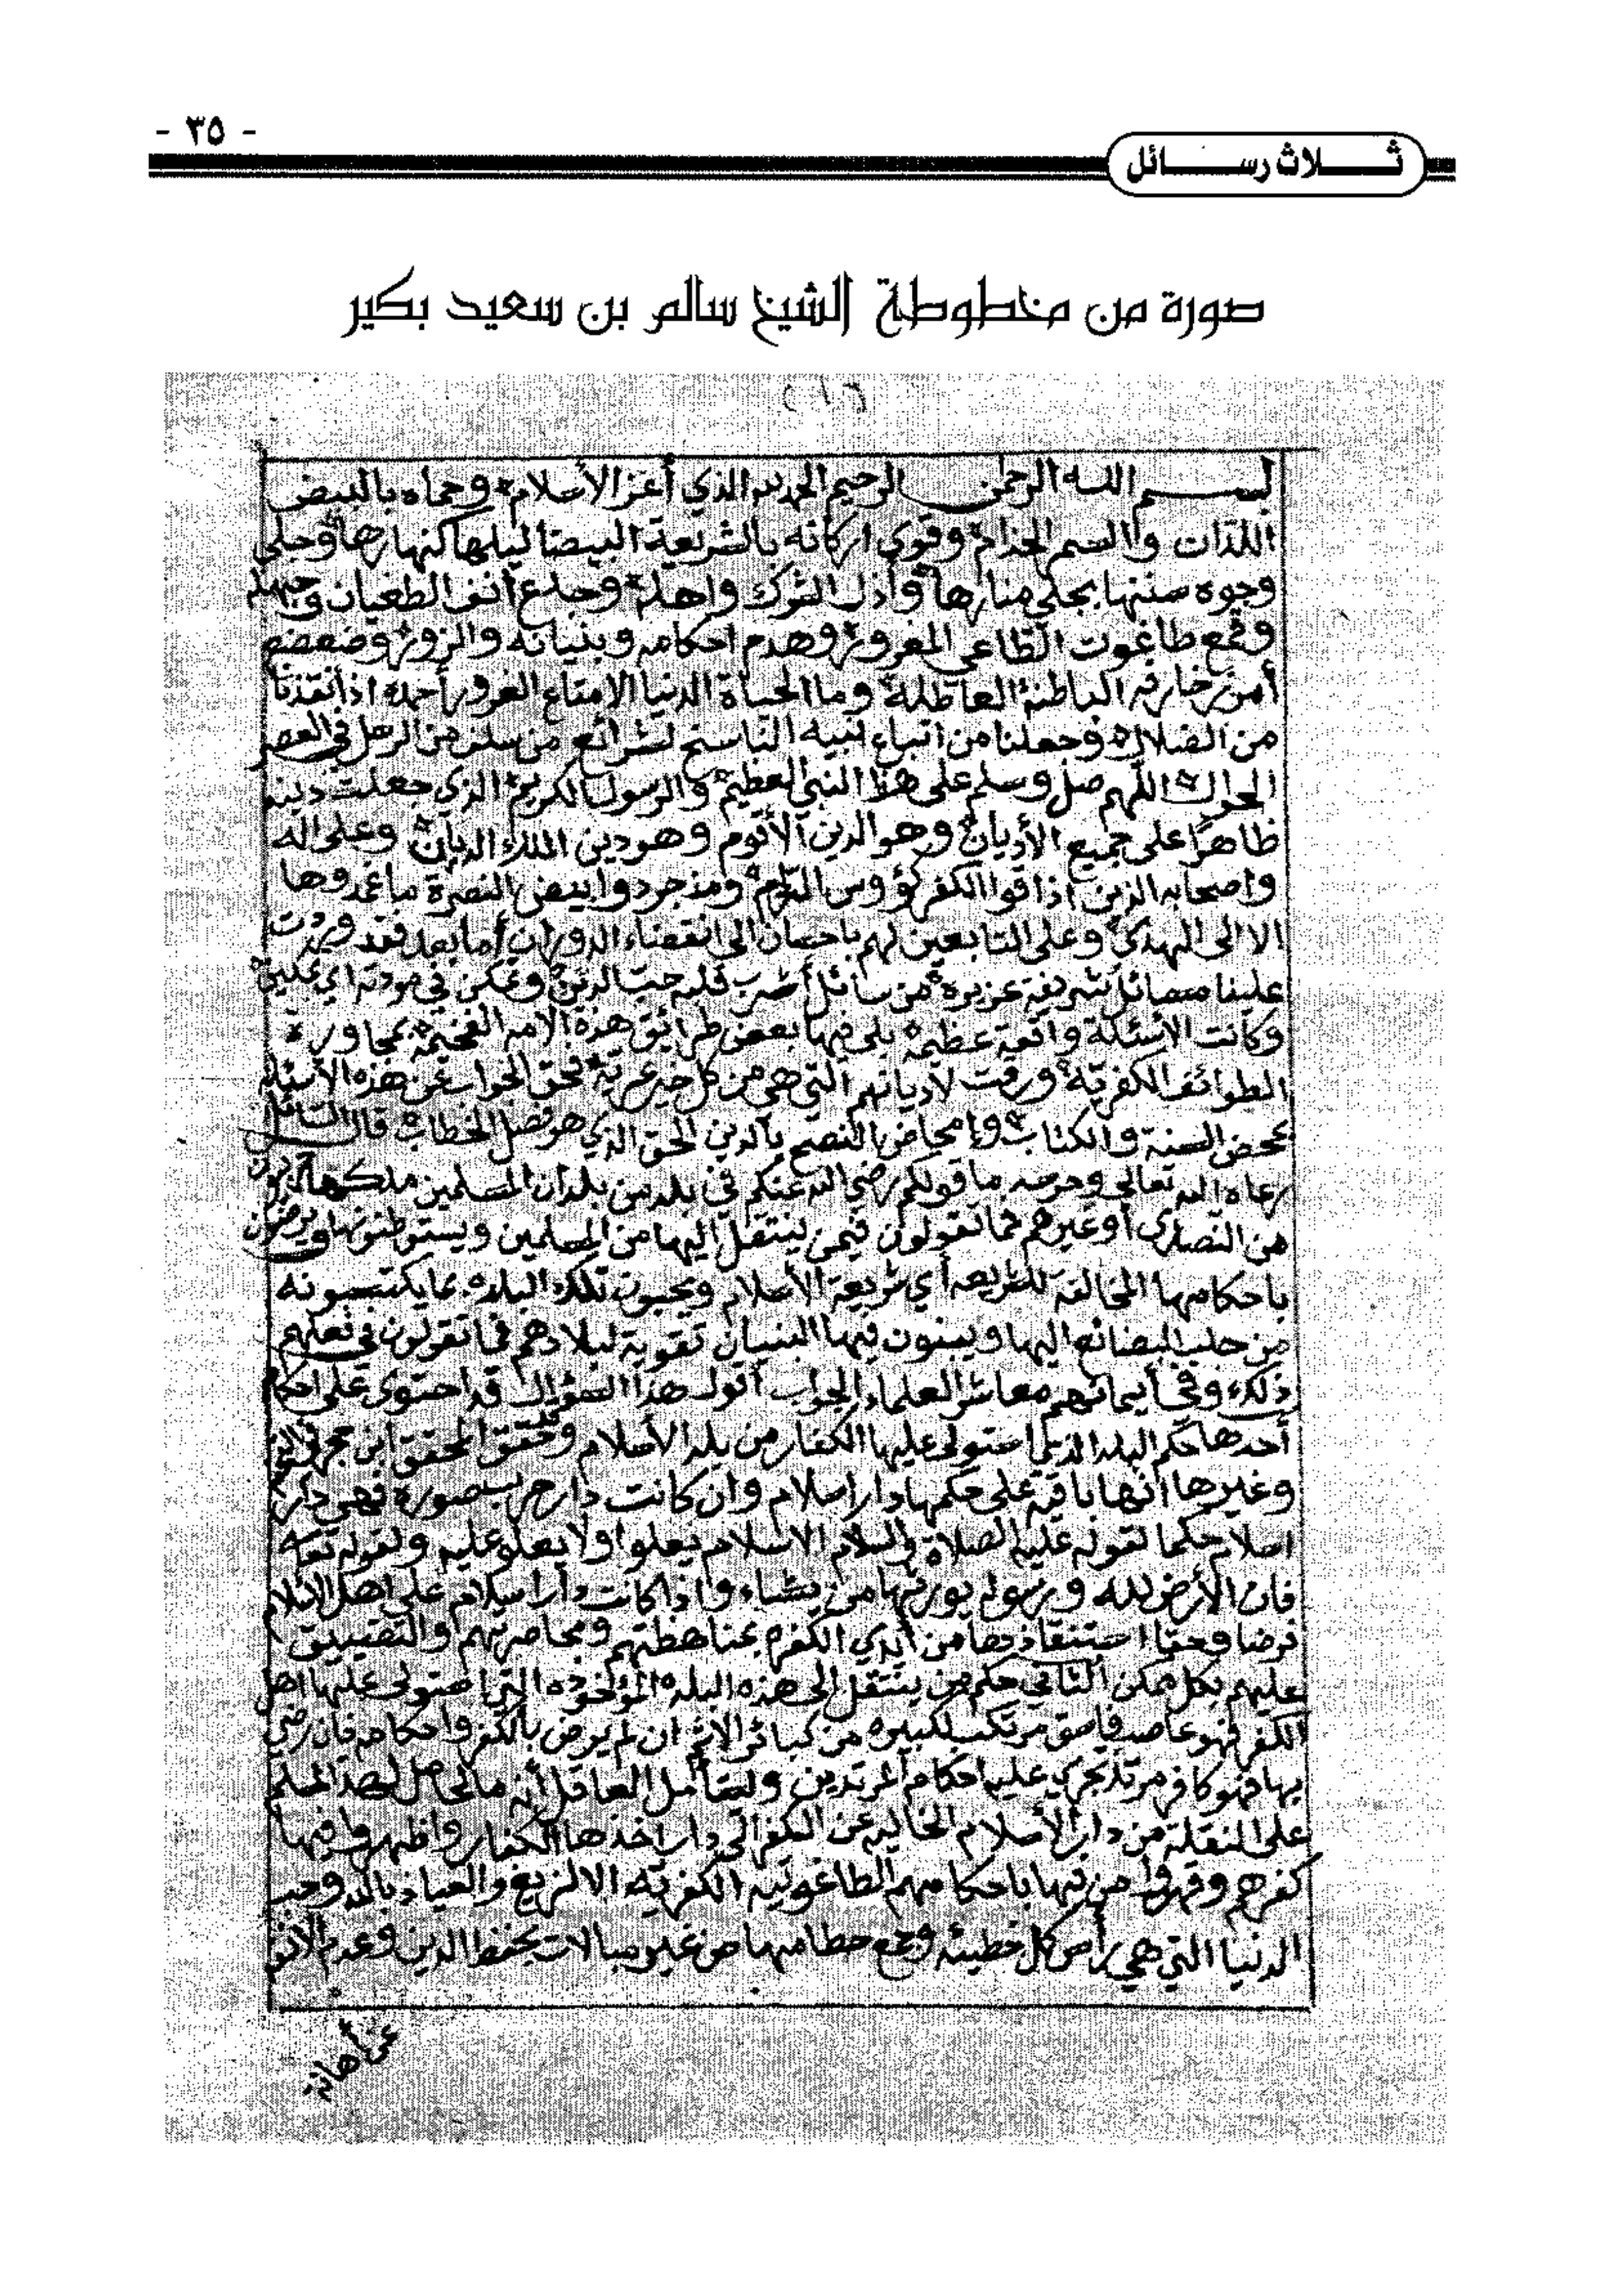 - ٣٥ -
ثــــلاث رســــائل
صورة من مخطوطة الشيخ سالم بن سعيد بكير
(١)
بسم الله الرحمن الرحيم الحمد لله الذي أعز الأسلام وحماه بالبيض
وقوى اركانه بالشريعة البيضا ليلها كنهارها وجلى
وجوه سنتها بجلي منارها وأذل الشرك واهله وجدع أنف الطغيان
وقمع طاغوت الطاغي المغرور وهدم احكامه وبنيانه والزور وضعضع
الباطنة العاطلة وما الحياة الدنيا الا متاع الغرور أحمده اذ أنقذنا
من الضلال وجعلنا من اتباع نبيه الناسخ لشرائع من سلف من الرسل في العصر
اللهم صل وسلم على هذا النبي العظيم والرسول الكريم الذي جعلت دينه
ظاهرا على جميع الأديان وهو الدين الأقوم وهو دين الملك الديان وعلى اله
واصحابه الذين اذاقوا الكفر كؤوس ومذ جردوا بيض النصرة ما غمدوها
الا الى الهدى وعلى التابعين لهم باحسان الى انقضاء الدوران أما بعد فقد وردت
علينا مسائل شريفة عزيزة من سائل أشرب قلبه حب الدين وتمكن في
وكانت الأسئلة واقعة عظيمة بلي فيها بعض طرائق هذه الامة الفخيمة بمجاورة
الطوائف الكفرية ورقت لاديانهم التي هي من كل خير عرية فحق الجواب عن هذه الأسئلة
بمحض السنة والكتاب وامحاض النصح بالدين الحق الذي هو فصل الخطاب قال السائل
رعاه الله تعالى وحرسه ما قولكم رضي الله عنكم في بلد من بلدان المسلمين ملكها
من النصارى أو غيرهم فما تقولون فيمن ينتقل اليها من المسلمين ويستوطنونها ويرضون
باحكامها المخالفة للشريعة أي شريعة الأسلام ويحيون تلك البلدة بما يكتسبونه
من جلب البضائع اليها ويبنون فيها البنيان تقوية لبلادهم فما تقولون في فعلهم
ذلك وفي أيمانهم معاشر العلماء الجواب أقول هذا السؤال قد احتوى على احكام
أحدها حكم البلد الذي استولى عليها الكفار من بلد الأسلام وحقق المحقق ابن حجر في
وغيرها أنها باقية على حكمها دار اسلام وان كانت دار حرب صورة فهي دار
اسلام حكما لقوله عليه الصلاة والسلام الاسلام يعلوا ولا يعلو عليه ولقوله تعالى
فان الأرض لله ورسوله يورثها من يشاء واذا كانت دار اسلام على اهل الاسلام
فرضا وحقا استنقاذها من أيدي الكفرة بمناهظتهم ومحاصرتهم والتضييق
عليهم بكل ممكن الثاني حكم من ينتقل الى هذه البلدة المؤخوذه التي استولى عليها اهل
الكفر فهو عاصي فاسق مرتكب لكبيره من كبائر الاثم ان لم يرض بالكفر واحكامه فان رضي
بها فهو كافر مرتد تجري عليه احكام المرتدين وليتأمل العاقل أنه ما الحامل لهذا المسلم
على النقلة من دار الأسلام الخالية عن الكفر الى دار اخذها الكفار واظهروا فيها
كفرهم وقهروا من فيها باحكامهم الطاغوتيه الكفريه الا لزيغ والعياذ بالله وحب
الدنيا التي هي رأس كل خطيئه وجمع حطامها من غير مبالات بحفظ الدين وعدم الأنفة
عن أهانة